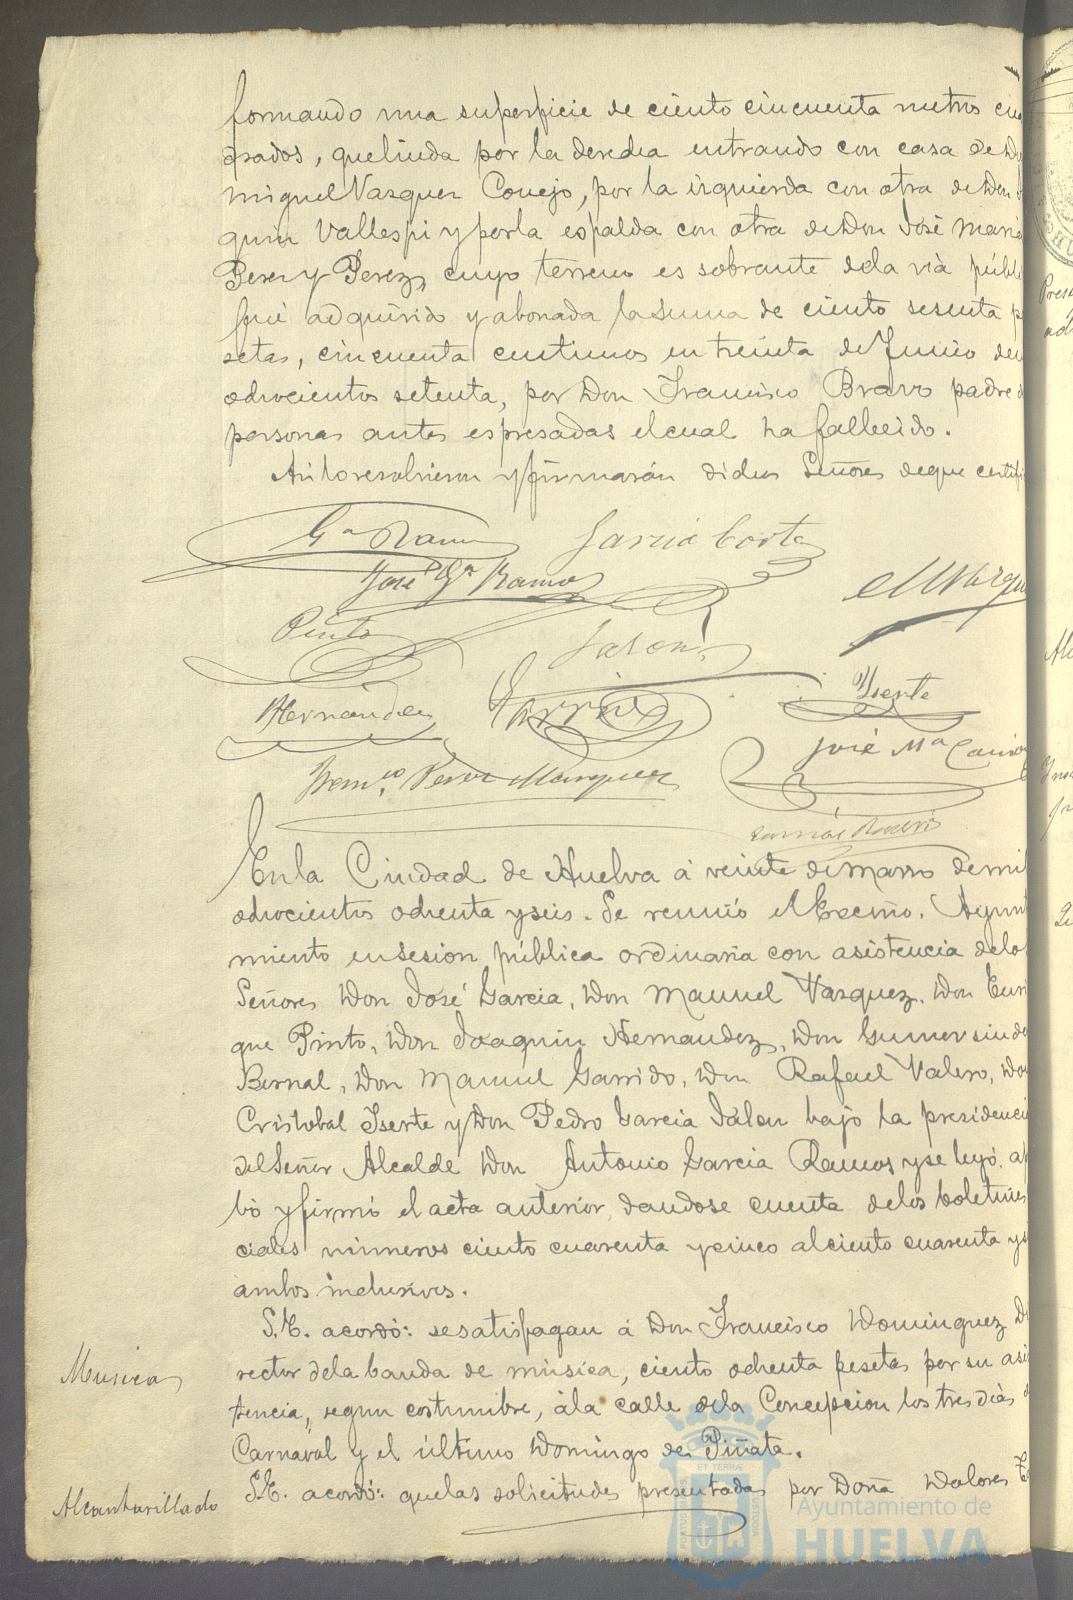 formando una superficie de ciento cincuenta metros cua
drados, que linda por la derecha entrando con casa de Do
Miguel Vasquez Conejo, por la izquierda con otra de Don
quin Vallespi y por la espalda con otra de Don José Maria
Perez y Perez, cuyo terreno es sobrante de la via públi
fué adquirido y abonada la suma de ciento sesenta p
setas, cincuenta centimos en treinta de Junio de
ochocientos setenta, por Don Francisco Bravo padre d
personas antes espresadas el cual ha fallecido.
Asi lo resolvieron y firmarán dichos Señores de que certifi
Ga Ramos
Garcia Corta
José Ga Ramos
M Vazque
Pinto
Jalon
Hernandez
Garrido
Yserte
José Ma
Franco Perez Marquez
En la Ciudad de Huelva á veinte de Marzo de mil
ochocientos ochenta y seis. Se reunió el Excmo. Ayunt
miento en sesion pública ordinaria con asistencia de lo
Señores Don José Garcia, Don Manuel Vazquez, Don Enri
que Pinto, Don Joaquin Hernandez, Don Gumersindo
Bernal, Don Manuel Garrido, Don Rafael Valero, Do
Cristobal Yserte y Don Pedro Garcia Jalon bajo la presidenci
del Señor Alcalde Don Antonio Garcia Ramos y se leyó, a
bó y firmó el acta anterior, dandose cuenta de los boletines
ciales números ciento cuarenta y cinco al ciento cuarenta y s
ambos inclusives.
S.E. acordó: se satisfagan á Don Francisco Dominguez Di
Musica
rector de la banda de música, ciento ochenta pesetas por su asis
tencia, segun costumbre, á la calle de la Concepcion los tres dias d
Carnaval y el último Domingo de Piñata.
Alcantarillado
S.E. acordó: que las solicitudes presentadas por Doña Dolores
Ayuntamiento de
HUELVA